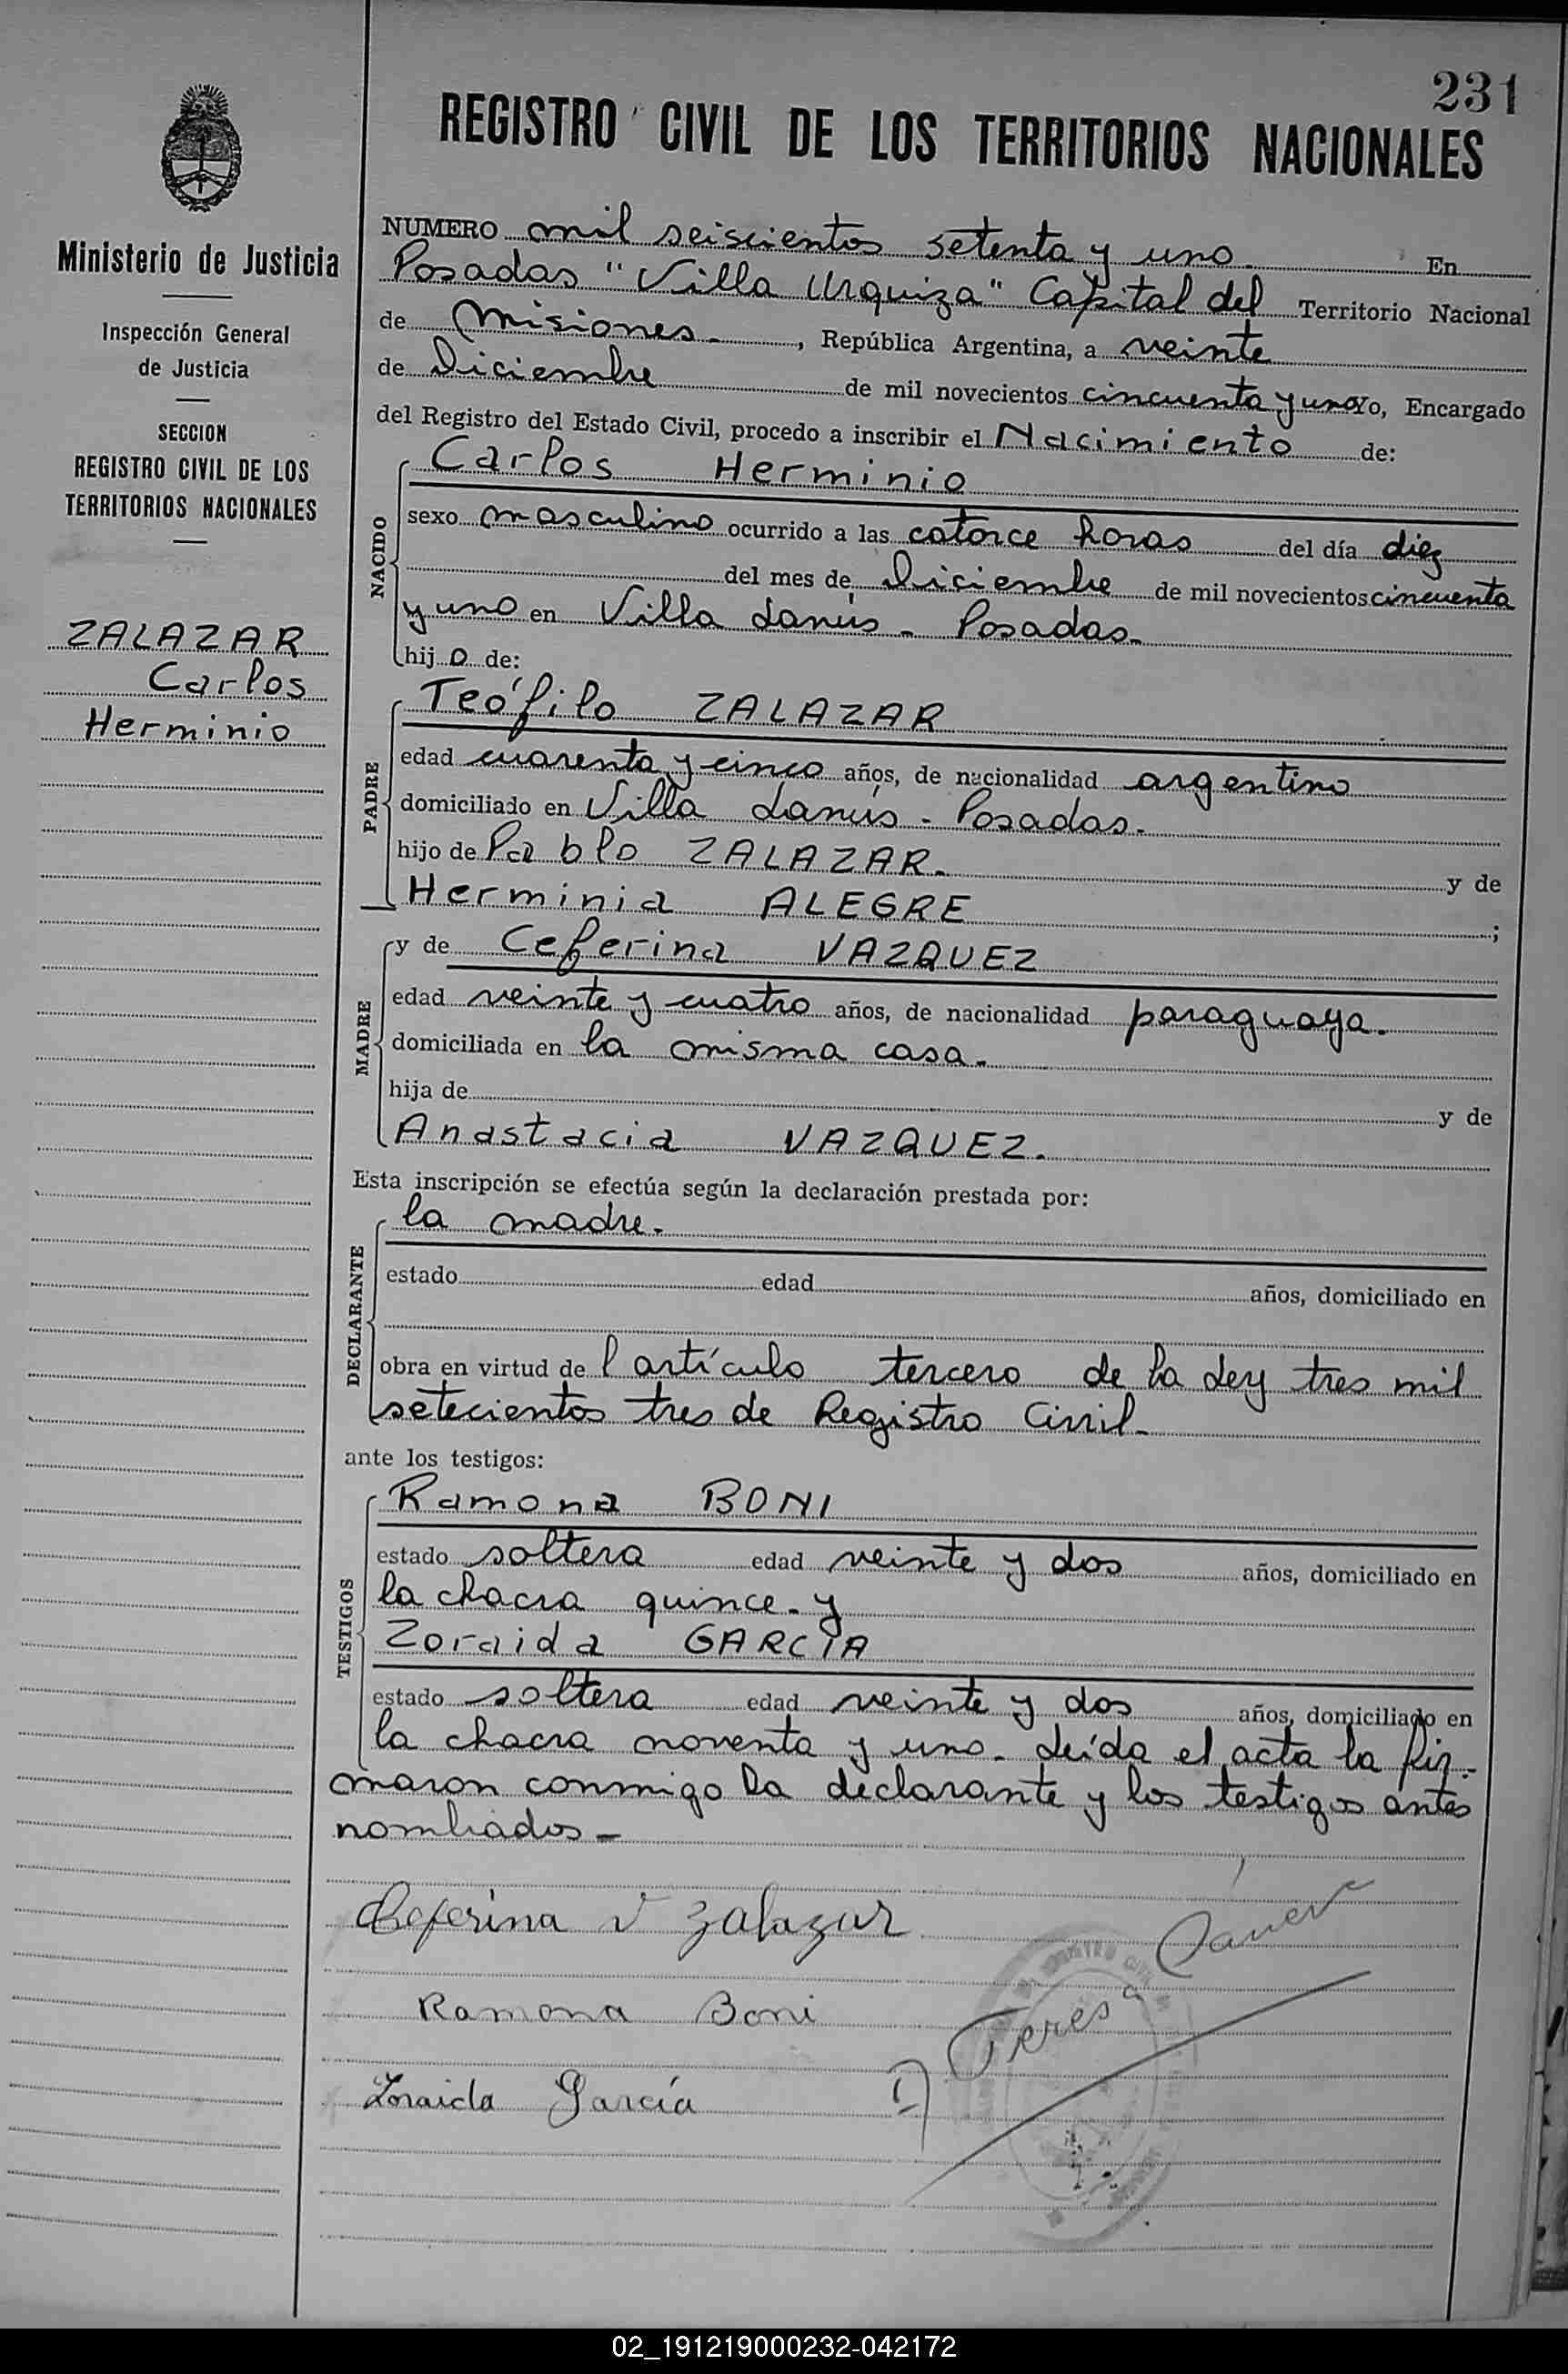 231
REGISTRO CIVIL DE LOS TERRITORIOS NACIONALES
Ministerio de Justicia
Inspección General
de Justicia
SECCION
REGISTRO CIVIL DE LOS
TERRITORIOS NACIONALES
ZALAZAR
Carlos
Herminio
NUMERO mil seiscientos setenta y uno. En
Posadas "Villa Urquiza" Capital del Territorio Nacional
de Misiones-, República Argentina, a veinte
de Diciembre de mil novecientos cincuenta y uno Yo, Encargado
del Registro del Estado Civil, procedo a inscribir el Nacimiento de:
NACIDO
Carlos Herminio
sexo masculino ocurrido a las catorce horas del día diez
del mes de Diciembre de mil novecientos cincuenta
y uno en Villa Lanús - Posadas-
hijo de:
PADRE
Teófilo ZALAZAR
edad cuarenta y cinco años, de nacionalidad argentino
domiciliado en Villa Lanús - Posadas-
hijo de Pablo ZALAZAR- y de
Herminia ALEGRE ;
MADRE
y de Ceferina VAZQUEZ
edad veinte y cuatro años, de nacionalidad paraguaya-
domiciliada en la misma casa-
hija de y de
Anastacia VAZQUEZ.
Esta inscripción se efectúa según la declaración prestada por:
DECLARANTE
la madre-
estado edad años, domiciliado en
obra en virtud del artículo tercero de la Ley tres mil
setecientos tres de Registro Civil-
ante los testigos:
TESTIGOS
Ramona BONI
estado soltera edad veinte y dos años, domiciliado en
la chacra quince- y
Zoraida GARCÍA
estado soltera edad veinte y dos años, domiciliado en
la chacra noventa y uno- Leída el acta la fir-
maron conmigo la declarante y los testigos antes
nombrados-
Ceferina V Zalazar
Ramona Boni
Zoraida García
Teresa
02_191219000232-042172